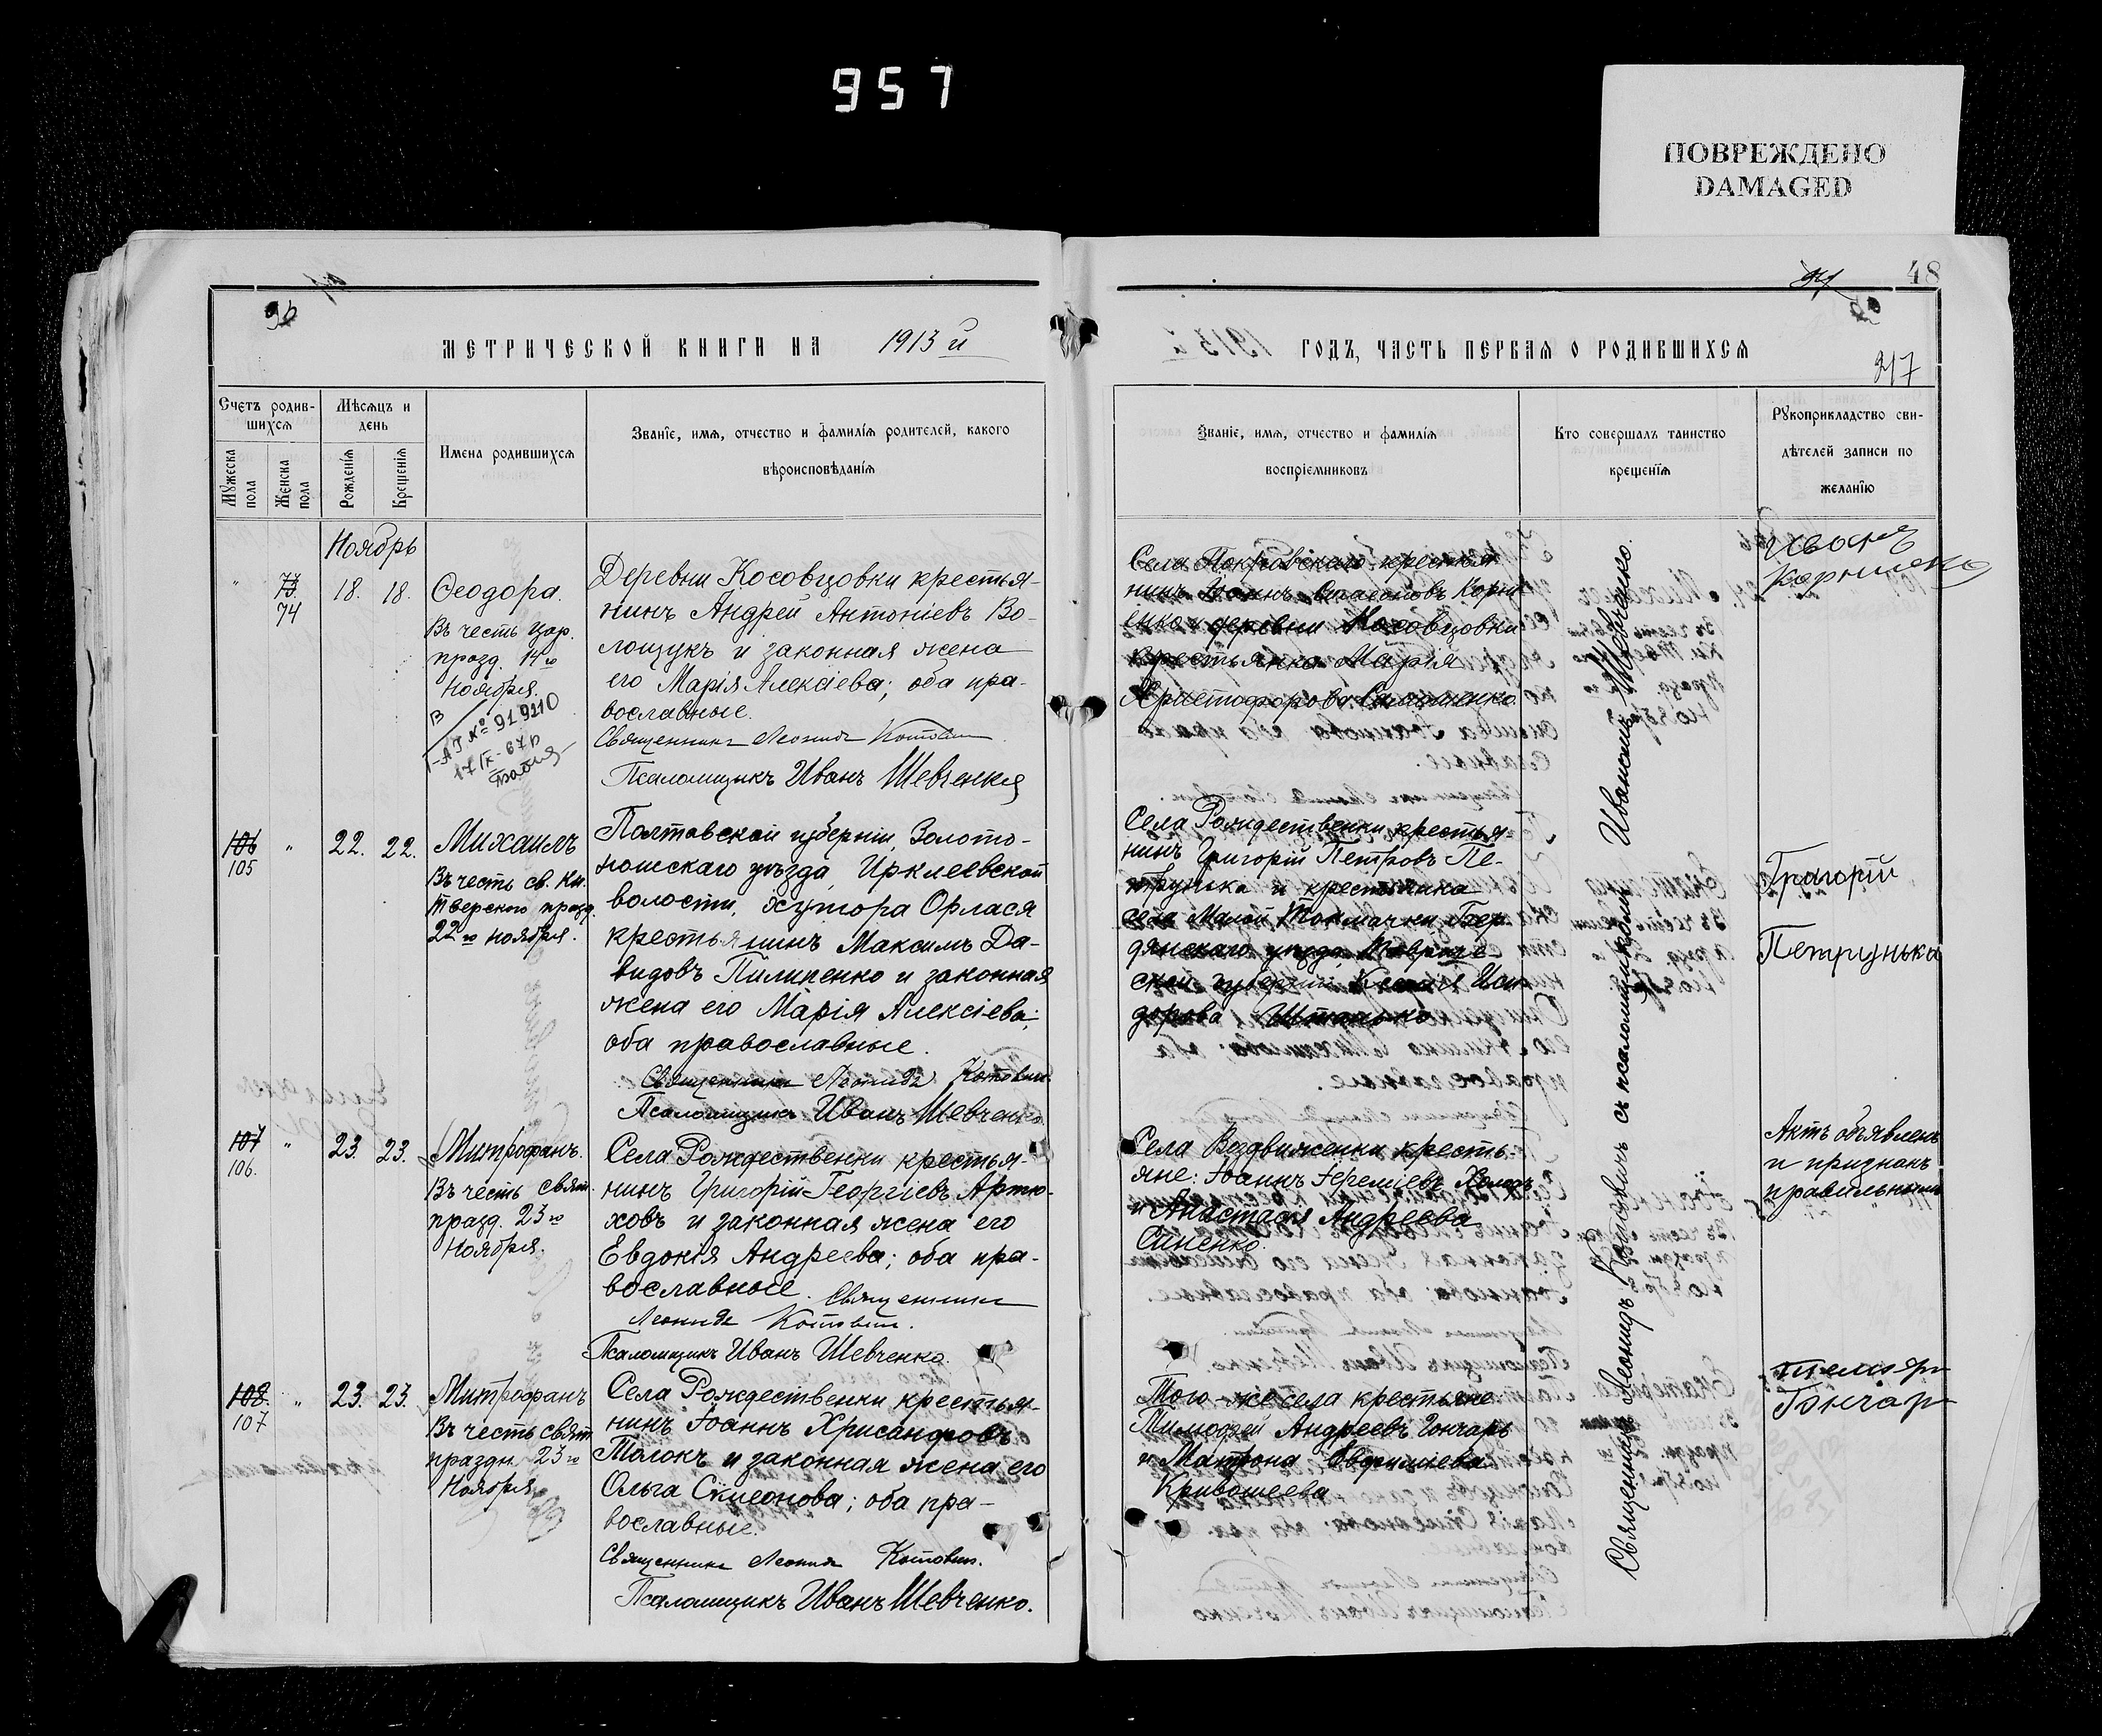 957
ПОВРЕЖДЕНО
DAMAGED
48
96
МЕТРИЧЕСКОЙ КНИГИ НА 1913 й
ГОДЪ, ЧАСТЬ ПЕРВАЯ О РОДИВШИХСЯ
217
Счетъ родив-
шихся
Мужеска пола
Женска пола
Мѣсяцъ и
день
Рожденія
Крещенія
Имена родившихся
Званіе, имя, отчество и фамилія родителей, какого
вѣроисповѣданія
Званіе, имя, отчество и фамилія
воспріемниковъ
Кто совершалъ таинство
крещенія
Рукоприкладство сви-
дѣтелей записи по
желанію
Ноябрь
"
74
18. 18.
Ѳеодора.
Въ честь цар.
празд. 14го
Ноября.
№ 919210
Деревни Косовцовки крестья-
нинъ Андрей Антоніевъ Во-
лощукъ и законная жена
его Марія Алексіева; оба пра-
вославные.
Священникъ Леонидъ Котович
Псаломщикъ Иванъ Шевченко
Села Покровскаго крестья
нинъ Іоаннъ Корні
енко и деревни Косовцовки
крестьянка Марія
Христофорова
Иванъ
Корниенко
106
105
"
22. 22.
Михаилъ
Въ честь св. Кн.
Тверского празд.
22го ноября.
Полтавской губерніи, Золото-
ношскаго уѣзда, Ирклеевской
волости, хутора Орлася
крестьянинъ Максимъ Да-
видовъ Пилипенко и законная
жена его Марія Алексіева;
оба православные.
Священникъ Леонидъ Котович
Псаломщикъ Иванъ Шевченко
Села Рождественки крестья-
нинъ Григорій Петровъ Пе-
трунька и крестьянка
села Малой Токмачки Бер-
дянскаго уѣзда, Тавриче-
ской губерніи Ксенія Иси-
дорова Штанько
Григорій
Петрунька
107
106.
"
23. 23.
Митрофанъ.
Въ честь свят.
празд. 23го
Ноября.
Села Рождественки крестья-
нинъ Григорій Георгіевъ Артю-
ховъ и законная жена его
Евдокія Андреева; оба пра-
вославные. Священникъ
Леонидъ Котович.
Псаломщикъ Иванъ Шевченко.
Села Воздвиженки кресть-
яне: Іоаннъ Іереміевъ Холодъ
и Анастасія Андреева
Синенко.
Актъ объявленъ
и признанъ
правильнымъ
108.
107
"
23. 23.
Митрофанъ
Въ честь свят.
праздн. 23го
Ноября
Села Рождественки крестья-
нинъ Іоаннъ Хрисанфовъ
Толокъ и законная жена его
Ольга Симеонова; оба пра-
вославные.
Священникъ Леонидъ Котович.
Псаломщикъ Иванъ Шевченко.
Того-же села крестьяне
Тимоѳей Андреевъ Гончаръ
и Матрона Евфиміева
Кривошеева
Гончар
Священникъ Леонидъ Котовичъ съ псаломщикомъ Иваномъ Шевченко.